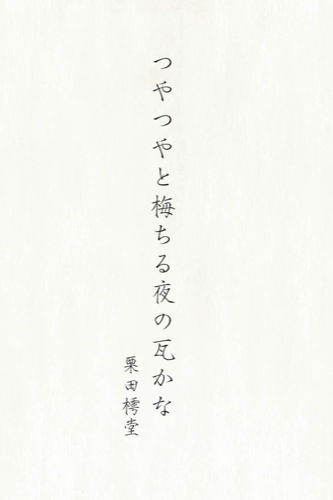 つやつやと梅ちる夜の瓦かな
栗田樗堂